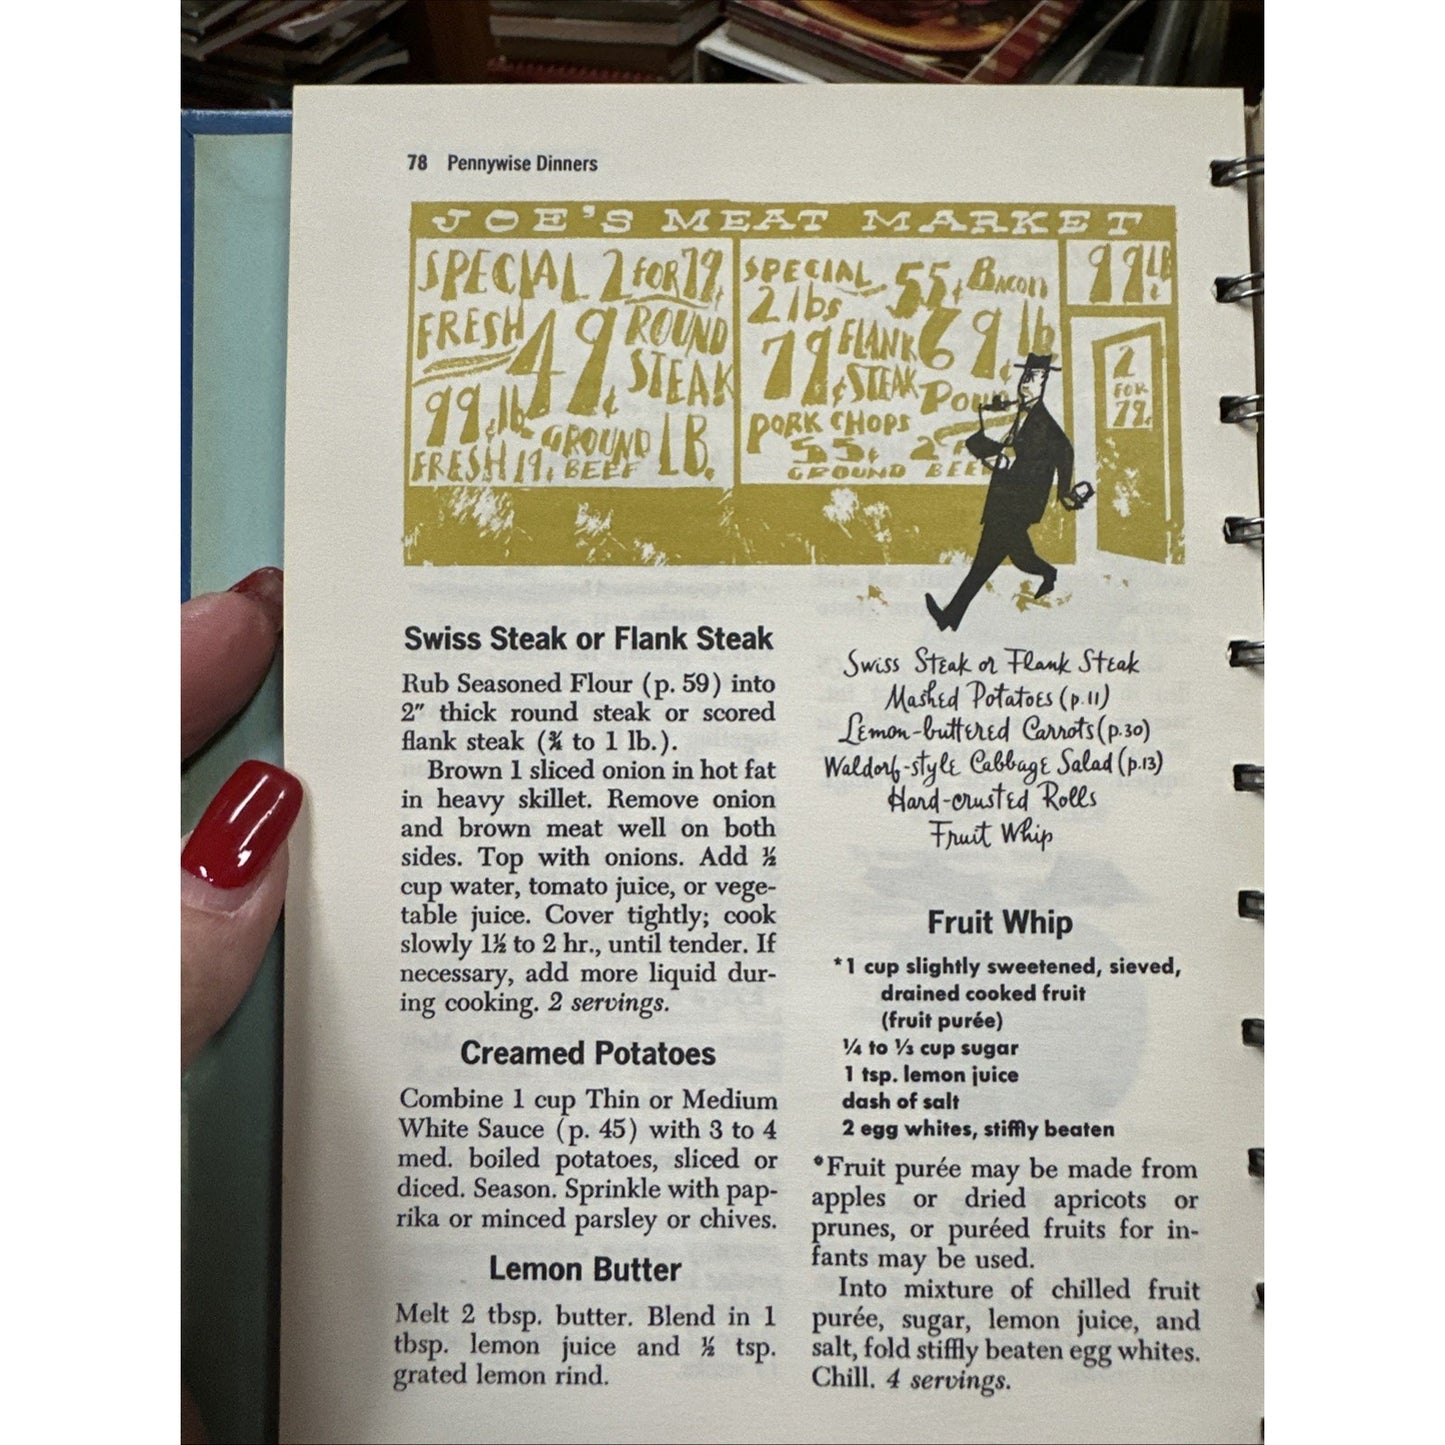 78 Pennywise Dinners
JOE'S MEAT MARKET
SPECIAL 2 FOR 79¢
FRESH 49¢ ROUND
STEAK
99¢ lb
GROUND
BEEF
LB.
FRESH 19¢
SPECIAL 55¢ BACON
2 lbs
79¢ FLANK
STEAK
69¢ lb
PORK CHOPS
55¢
GROUND BEEF
99¢ LB
2
FOR
79¢
Swiss Steak or Flank Steak
Rub Seasoned Flour (p. 59) into
2" thick round steak or scored
flank steak (¾ to 1 lb.).
Brown 1 sliced onion in hot fat
in heavy skillet. Remove onion
and brown meat well on both
sides. Top with onions. Add ½
cup water, tomato juice, or vege-
table juice. Cover tightly; cook
slowly 1½ to 2 hr., until tender. If
necessary, add more liquid dur-
ing cooking. 2 servings.
Creamed Potatoes
Combine 1 cup Thin or Medium
White Sauce (p. 45) with 3 to 4
med. boiled potatoes, sliced or
diced. Season. Sprinkle with pap-
rika or minced parsley or chives.
Lemon Butter
Melt 2 tbsp. butter. Blend in 1
tbsp. lemon juice and ½ tsp.
grated lemon rind.
Swiss Steak or Flank Steak
Mashed Potatoes (p.11)
Lemon-buttered Carrots (p.30)
Waldorf-style Cabbage Salad (p.13)
Hard-crusted Rolls
Fruit Whip
Fruit Whip
*1 cup slightly sweetened, sieved,
drained cooked fruit
(fruit purée)
¼ to ⅓ cup sugar
1 tsp. lemon juice
dash of salt
2 egg whites, stiffly beaten
*Fruit purée may be made from
apples or dried apricots or
prunes, or puréed fruits for in-
fants may be used.
Into mixture of chilled fruit
purée, sugar, lemon juice, and
salt, fold stiffly beaten egg whites.
Chill. 4 servings.